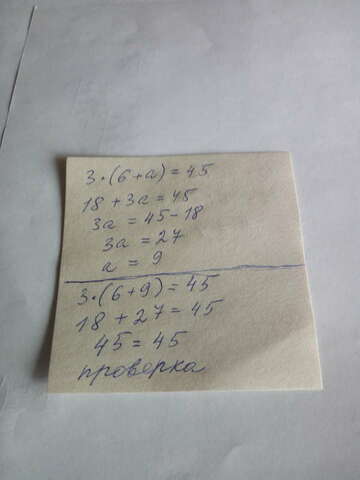 3·(6+a)=45
18+3a=45
3a=45-18
3a=27
a=9
3·(6+9)=45
18+27=45
45=45
проверка